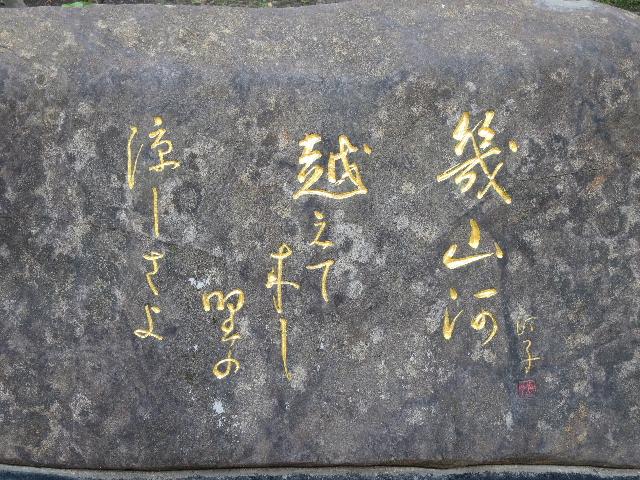 幾山河
越えて
来し
野の
涼しさよ